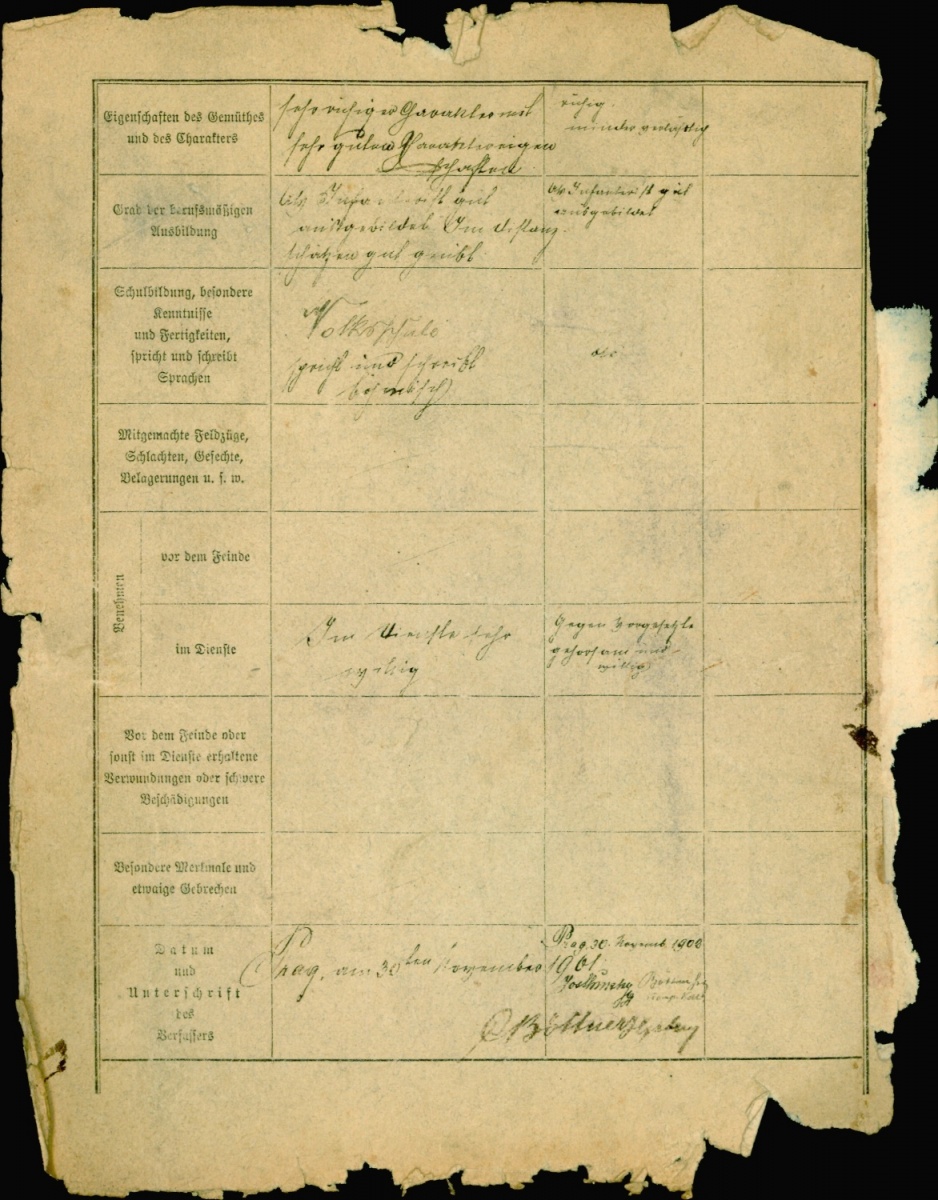 Eigenschaften des Gemüthes
und des Charakters
sehr ruhiger Charakter mit
sehr guten Charaktereigen
schaften
ruhig.
minder verläßlich
Grad der berufsmäßigen
Ausbildung
als Infanterist gut
ausgebildet. Im Distanz-
schätzen gut geübt.
als Infanterist gut
ausgebildet
Schulbildung, besondere
Kenntnisse
und Fertigkeiten,
spricht und schreibt
Sprachen
Volksschule
spricht und schreibt
böhmisch
Mitgemachte Feldzüge,
Schlachten, Gefechte,
Belagerungen u. s. w.
Benehmen
vor dem Feinde
im Dienste
Im Dienste sehr
willig
Gegen Vorgesetzte
gehorsam und
willig
Vor dem Feinde oder
sonst im Dienste erhaltene
Verwundungen oder schwere
Beschädigungen
Besondere Merkmale und
etwaige Gebrechen
Datum
und
Unterschrift
des
Verfassers
Prag, am 30ten November 1901.
Prag, 30. Novemb. 1900